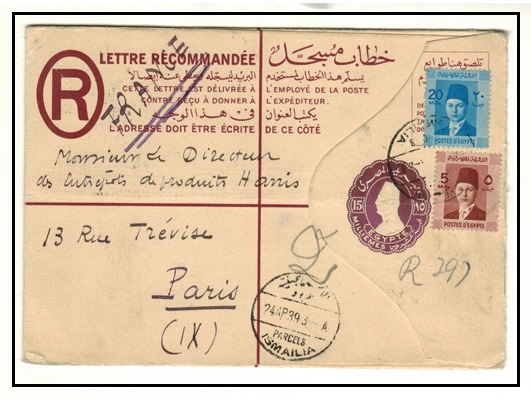 LETTRE RECOMMANDÉE
خطاب مسجل
R
CETTE LETTRE EST DÉLIVRÉE À
CONTRE REÇU À DONNER À
L'EMPLOYÉ DE LA POSTE
L'EXPÉDITEUR.
يكتب العنوان
فى هذا الوجه
L'ADRESSE DOIT ÊTRE ÉCRITE DE CE CÔTÉ
FRANCE
Monsieur Le Directeur
des Entrepôts de produits Harris
13 Rue Trévise
Paris
(IX)
20
٢٠
POSTES D'EGYPTE
5
٥
POSTES D'EGYPTE
15
١٥
EGYPTE
MILLIEMES
R 297
24 AP 39
PARCELS
ISMAILIA